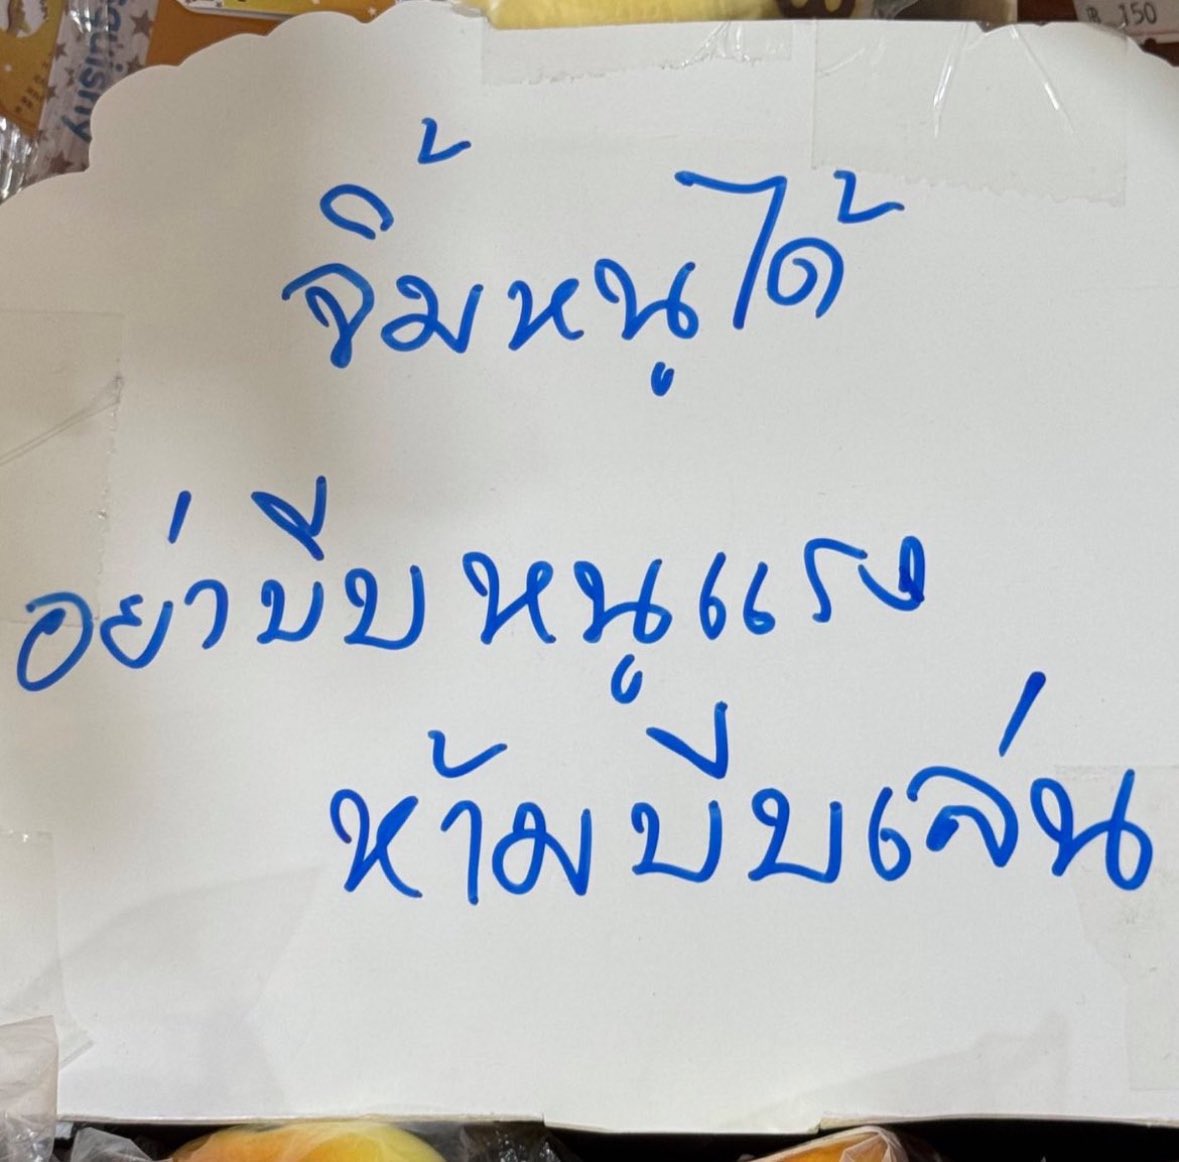 Squishy
฿ 150
จิ้มหนูได้
อย่าบีบหนูแรง
ห้ามบีบเล่น